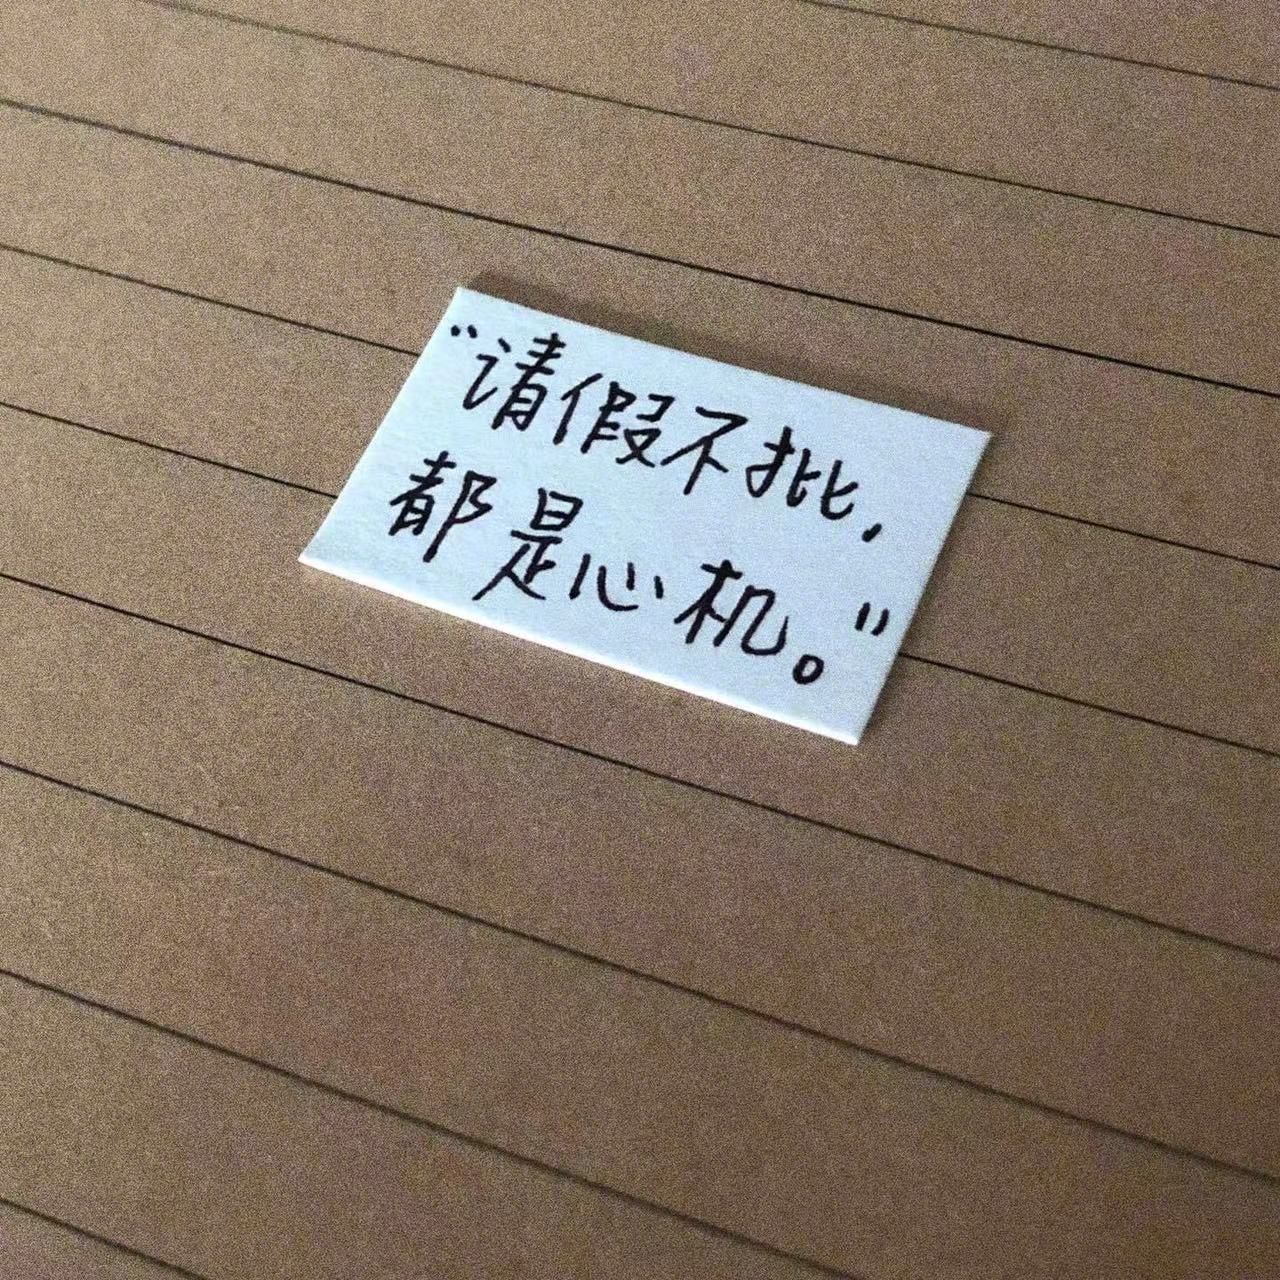 “请假不批,
都是心机。”